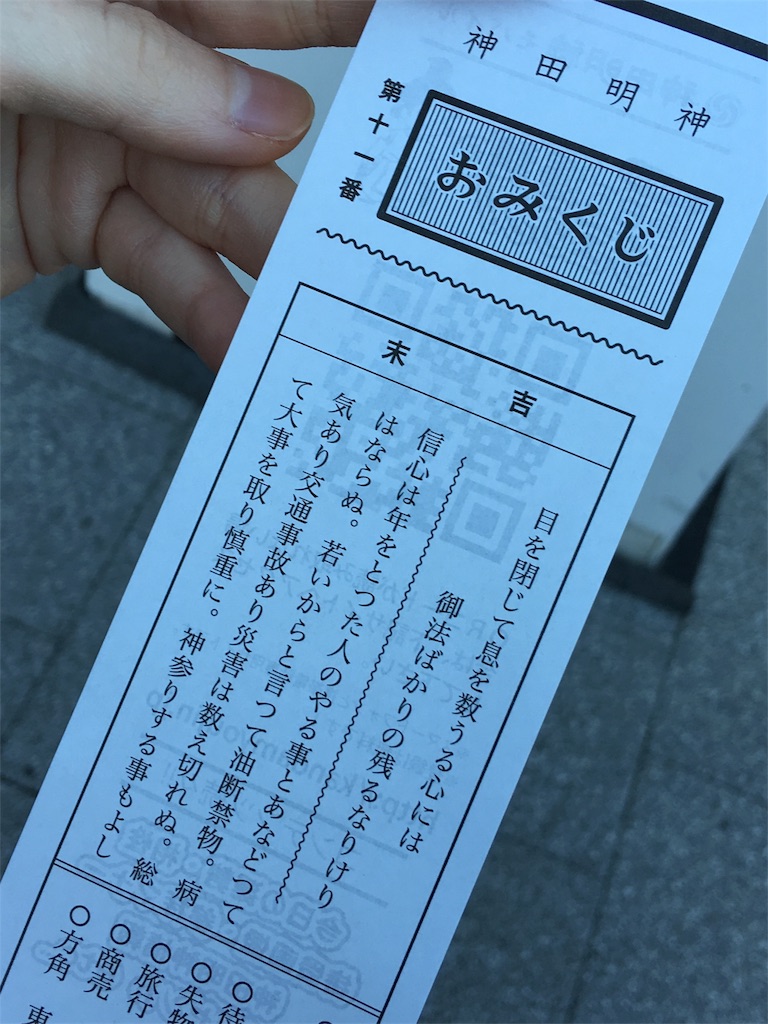 神田明神
第十一番
おみくじ
末吉
目を閉じて息を数うる心には
御法ばかりの残るなりけり
信心は年をとつた人のやる事とあなどつて
はならぬ。若いからと言つて油断禁物。病
気あり交通事故あり災害は数え切れぬ。総
て大事を取り慎重に。神参りする事もよし
○待
○失物
○旅行
○商売
○方角 東